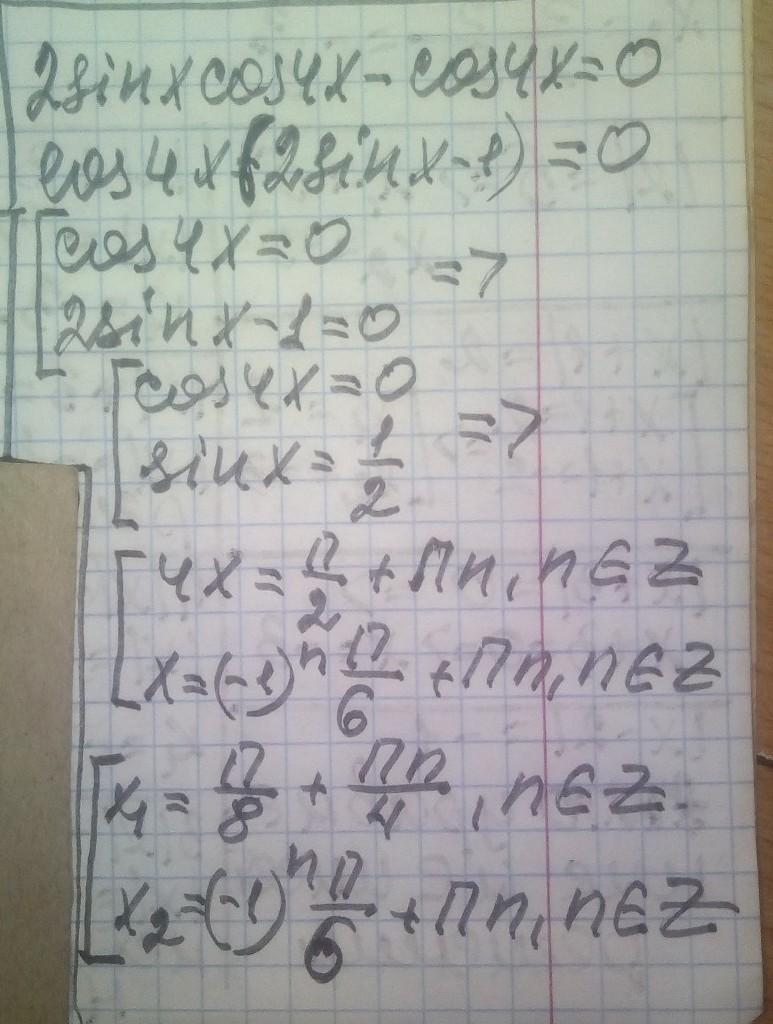 2sinxcos4x - cos4x = 0
cos4x(2sinx-1) = 0
[cos4x = 0
=>
2sinx-1 = 0
[cos4x = 0
=>
sinx = 1/2
[4x = П/2 + Пn, n∈Z
x = (-1)^n П/6 + Пn, n∈Z
[x₁ = П/8 + Пn/4, n∈Z
x₂ = (-1)^n П/6 + Пn, n∈Z